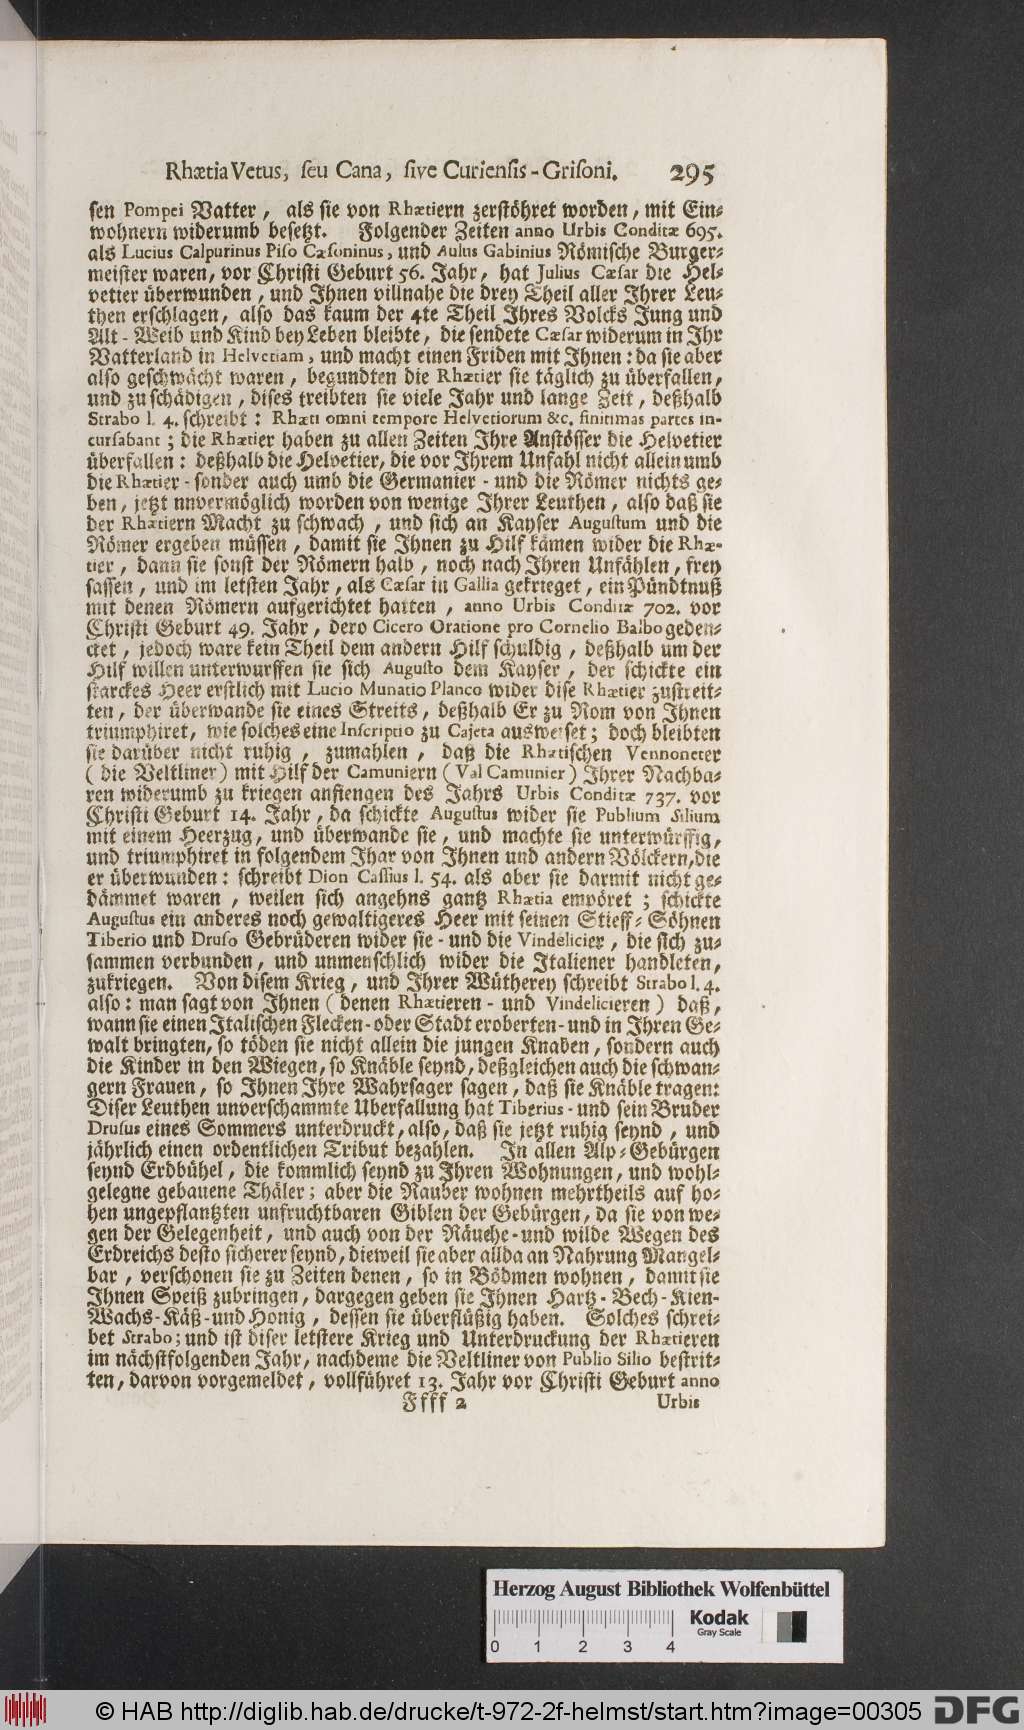 Rhætia Vetus, ſeu Cana, ſive Curienſis-Griſoni. 295
ſen Pompei Vatter, als ſie von Rhætiern zerſtöhret worden, mit Ein-
wohnern widerumb beſetzt. Folgender Zeiten anno Urbis Conditæ 695.
als Lucius Calpurinus Piſo Cæſoninus, und Aulus Gabinius Römiſche Burger-
meiſter waren, vor Chriſti Geburt 56. Jahr, hat Julius Cæſar die Hel-
vetier überwunden, und Ihnen villnahe die drey Theil aller Ihrer Leu-
then erſchlagen, alſo das kaum der 4te Theil Ihres Volcks Jung und
Alt-Weib und Kind bey Leben bleibte, die ſendete Cæſar widerum in Ihr
Vatterland in Helvetiam, und macht einen Friden mit Ihnen: da ſie aber
alſo geſchwächt waren, begundten die Rhætier ſie täglich zu überfallen,
und zu ſchädigen, diſes treibten ſie viele Jahr und lange Zeit, deßhalb
Strabo l. 4. ſchreibt: Rhæti omni tempore Helvetiorum &c. finitimas partes in-
curſabant; die Rhætier haben zu allen Zeiten Ihre Anſtöſſer die Helvetier
überfallen: deßhalb die Helvetier, die vor Ihrem Unfahl nicht allein umb
die Rhætier-ſonder auch umb die Germanier-und die Römer nichts ge-
ben, jetzt nnvermöglich worden von wenige Ihrer Leuthen, alſo daß ſie
der Rhætiern Macht zu ſchwach, und ſich an Kayſer Auguſtum und die
Römer ergeben müſſen, damit ſie Ihnen zu Hilf kämen wider die Rhæ-
tier, dann ſie ſonſt der Römern halb, noch nach Ihren Unfählen, frey
ſaſſen, und im letſten Jahr, als Cæſar in Gallia gekrieget, ein Pündtnuß
mit denen Römern aufgerichtet hatten, anno Urbis Conditæ 702. vor
Chriſti Geburt 49. Jahr, dero Cicero Oratione pro Cornelio Balbo geden-
ctet, jedoch ware kein Theil dem andern Hilf ſchuldig, deßhalb um der
Hilf willen unterwurffen ſie ſich Auguſto dem Kayſer, der ſchickte ein
ſtarckes Heer erſtlich mit Lucio Munatio Planco wider diſe Rhætier zuſtreit-
ten, der überwande ſie eines Streits, deßhalb Er zu Rom von Ihnen
triumphiret, wie ſolches eine Inſcriptio zu Cajeta ausweiſet; doch bleibten
ſie darüber nicht ruhig, zumahlen, daß die Rhætiſchen Vennoneter
(die Veltliner) mit Hilf der Camuniern (Val Camunier) Ihrer Nachba-
ren widerumb zu kriegen anfiengen des Jahrs Urbis Conditæ 737. vor
Chriſti Geburt 14. Jahr, da ſchickte Auguſtus wider ſie Publium Silium
mit einem Heerzug, und überwande ſie, und machte ſie unterwürffig,
und triumphiret in folgendem Jhar von Ihnen und andern Völckern, die
er überwunden: ſchreibt Dion Caſſius l. 54. als aber ſie darmit nicht ge-
dämmet waren, weilen ſich angehns gantz Rhætia empöret; ſchickte
Auguſtus ein anderes noch gewaltigeres Heer mit ſeinen Stieff-Söhnen
Tiberio und Druſo Gebrüderen wider ſie-und die Vindelicier, die ſich zu-
ſammen verbunden, und unmenſchlich wider die Italiener handleten,
zukriegen. Von diſem Krieg, und Ihrer Wütherey ſchreibt Strabo l. 4.
alſo: man ſagt von Ihnen (denen Rhætieren-und Vindelicieren) daß,
wann ſie einen Italiſchen Flecken-oder Stadt eroberten-und in Ihren Ge-
walt bringten, ſo töden ſie nicht allein die jungen Knaben, ſondern auch
die Kinder in den Wiegen, ſo Knäble ſeynd, deßgleichen auch die ſchwan-
gern Frauen, ſo Ihnen Ihre Wahrſager ſagen, daß ſie Knäble tragen:
Diſer Leuthen unverſchammte Uberfallung hat Tiberius-und ſein Bruder
Druſus eines Sommers unterdruckt, alſo, daß ſie jetzt ruhig ſeynd, und
jährlich einen ordentlichen Tribut bezahlen. In allen Alp-Gebürgen
ſeynd Erdbühel, die kommlich ſeynd zu Ihren Wohnungen, und wohl-
gelegne gebauene Thäler; aber die Rauber wohnen mehrtheils auf ho-
hen ungepflantzten unfruchtbaren Giblen der Gebürgen, da ſie von we-
gen der Gelegenheit, und auch von der Räuche-und wilde Wegen des
Erdreichs deſto ſicherer ſeynd, dieweil ſie aber allda an Nahrung Mangel-
bar, verſchonen ſie zu Zeiten denen, ſo in Bödmen wohnen, damit ſie
Ihnen Speiß zubringen, dargegen geben ſie Ihnen Hartz-Bech-Kien-
Wachs-Käß-und Honig, deſſen ſie überflüßig haben. Solches ſchrei-
bet Strabo; und iſt diſer letſtere Krieg und Unterdruckung der Rhætieren
im nächſtfolgenden Jahr, nachdeme die Veltliner von Publio Silio beſtrit-
ten, darvon vorgemeldet, vollführet 13. Jahr vor Chriſti Geburt anno
Ffff 2 Urbis
Herzog August Bibliothek Wolfenbüttel
Kodak
Gray Scale
0 1 2 3 4
© HAB http://diglib.hab.de/drucke/t-972-2f-helmst/start.htm?image=00305 DFG